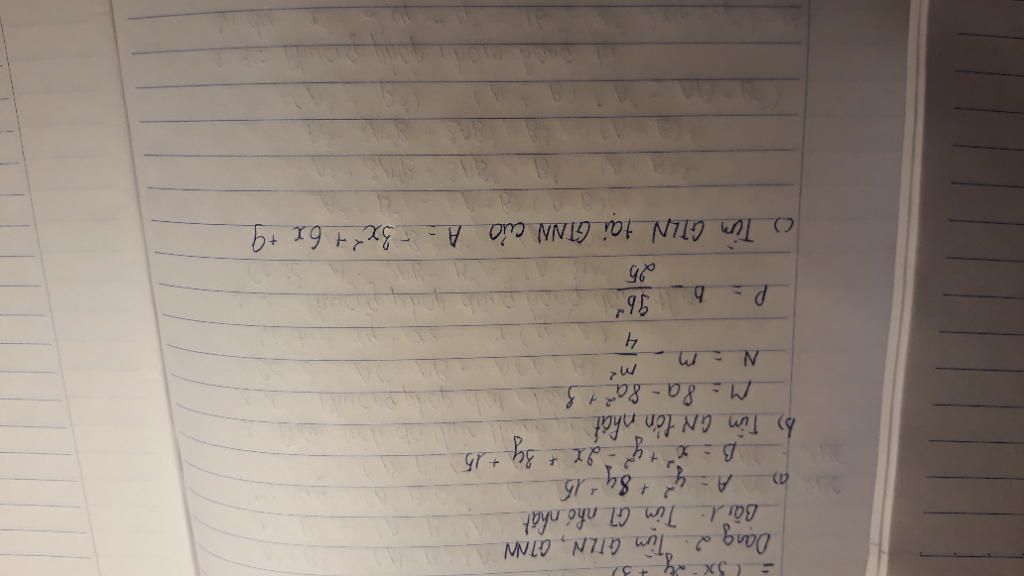 = (3x - 2y + 3)
Dạng 2: Tìm GTLN, GTNN
Bài 1: Tìm GT nhỏ nhất
a) A = y² + 8y - 15
B = x² + y² - 2x + 3y + 15
b) Tìm GN lớn nhất
M = 8a - 8a² + 3
N = m - m²/4
P = b - 9b²/25
c) Tìm GTLN tại GTNN của A = -3x² + 6x + 9